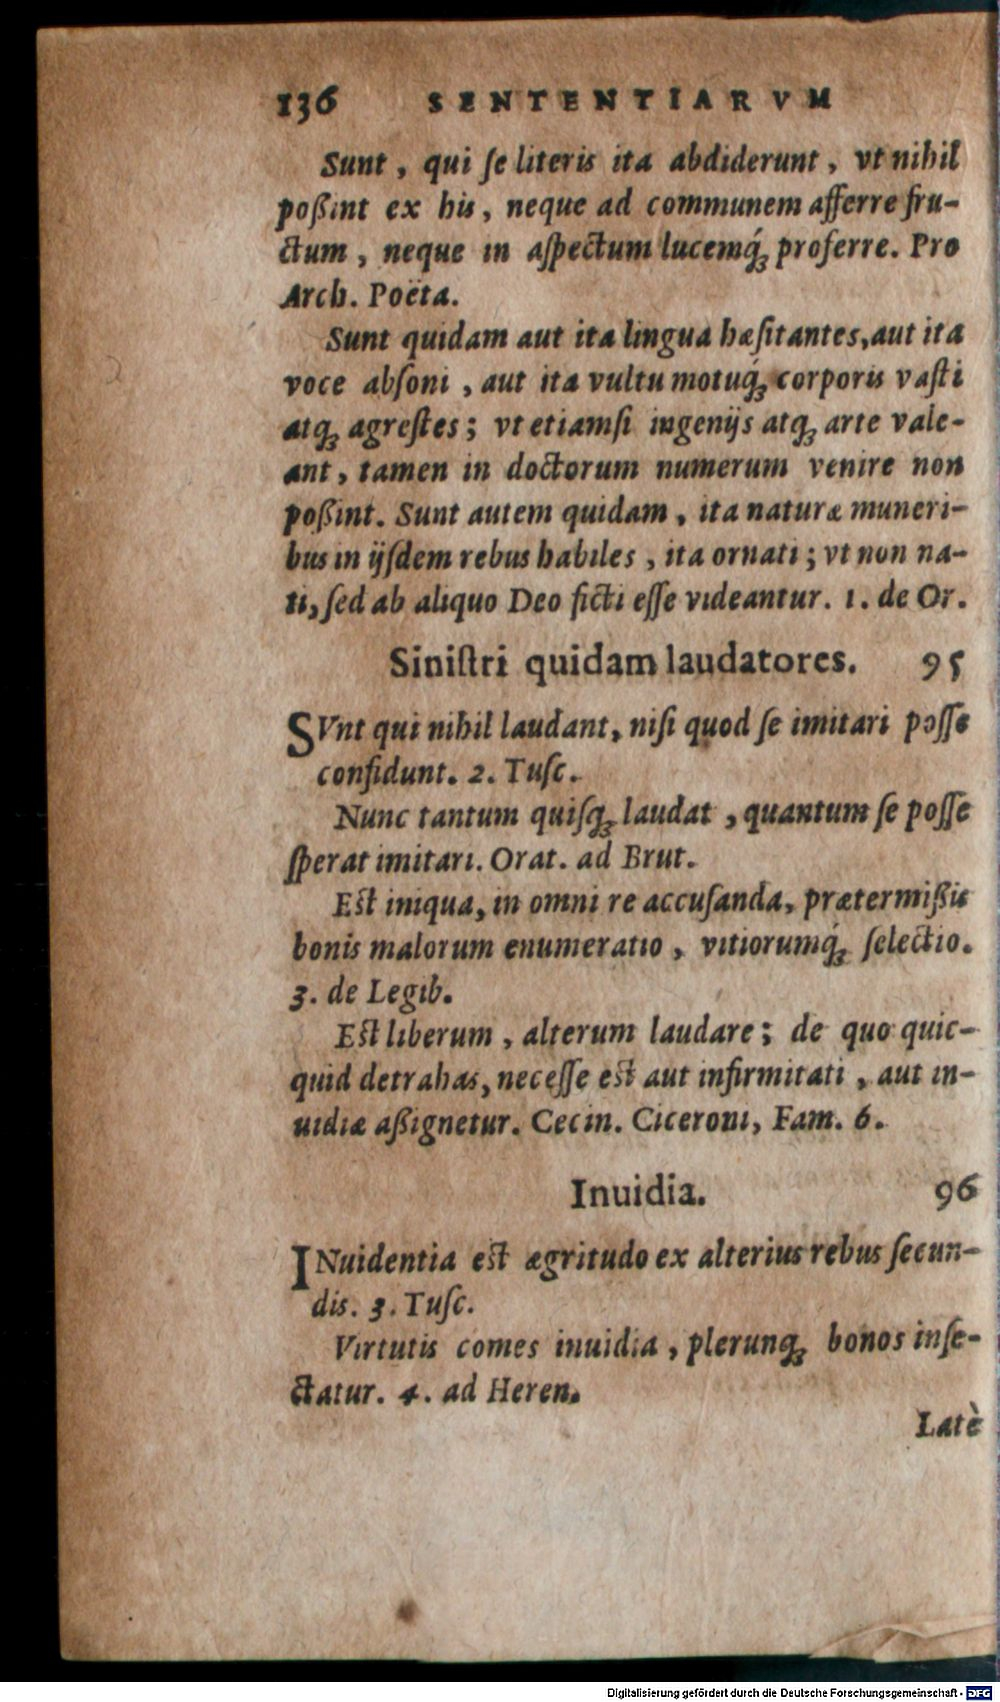 136 SENTENTIARVM
Sunt, qui ſe literis ita abdiderunt, vt nihil
poßint ex his, neque ad communem afferre fru-
ctum, neque in aſpectum lucemq́ꝫ proferre. Pro
Arch. Poëta.
Sunt quidam aut ita lingua hæſitantes, aut ita
voce abſoni, aut ita vultu motuq́ꝫ corporis vaſti
atqꝫ agreſtes; vt etiamſi ingenijs atqꝫ arte vale-
ant, tamen in doctorum numerum venire non
poßint. Sunt autem quidam, ita naturæ muneri-
bus in ijſdem rebus habiles, ita ornati; vt non na-
ti, ſed ab aliquo Deo ficti eſſe videantur. 1. de Or.
Siniſtri quidam laudatores. 95
SVnt qui nihil laudant, niſi quod ſe imitari poſſe
confidunt. 2. Tuſc.
Nunc tantum quiſqꝫ laudat, quantum ſe poſſe
ſperat imitari. Orat. ad Brut.
Eſt iniqua, in omni re accuſanda, prætermißis
bonis malorum enumeratio, vitiorumq́ꝫ ſelectio.
3. de Legib.
Eſt liberum, alterum laudare; de quo quic-
quid detrahas, neceſſe eſt aut infirmitati, aut in-
uidiæ aßignetur. Cecin. Ciceroni, Fam. 6.
Inuidia. 96
INuidentia eſt ægritudo ex alterius rebus ſecun-
dis. 3. Tuſc.
Virtutis comes inuidia, plerunqꝫ bonos inſe-
ctatur. 4. ad Heren.
Latè
Digitalisierung gefördert durch die Deutsche Forschungsgemeinschaft - DFG